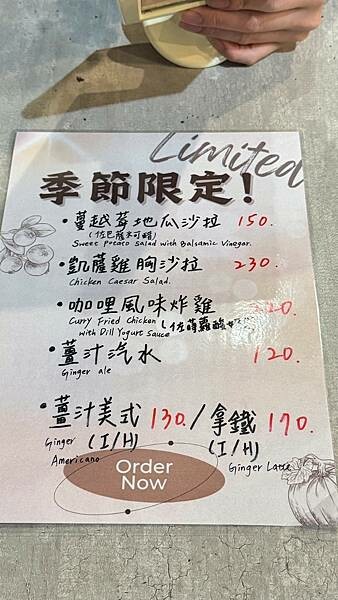 Limited
季節限定!
•蔓越莓地瓜沙拉 150.
(佐巴薩米可醋)
Sweet Potato Salad with Balsamic Vinegar.
•凱薩雞胸沙拉 230.
Chicken Caesar Salad.
•咖哩風味炸雞 20.
Curry Fried Chicken (佐蒔蘿酸
with Dill Yogurt Sauce
•薑汁汽水 120.
Ginger ale
•薑汁美式 130./拿鐵 170.
Ginger (I/H) (I/H)
Americano Ginger Latte
Order
Now